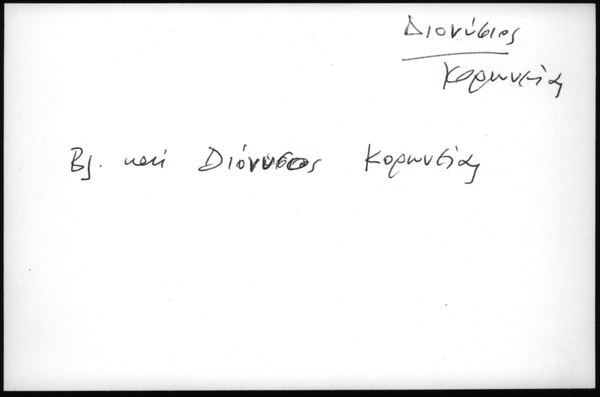 Διονύσιος
Κορωνείας
Βλ. και Διόνυσος Κορωνείας